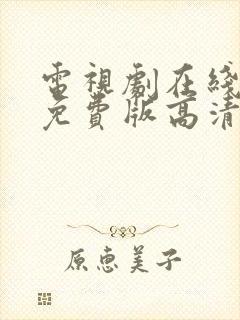 電視劇在綫
免費版高清
原惠美子